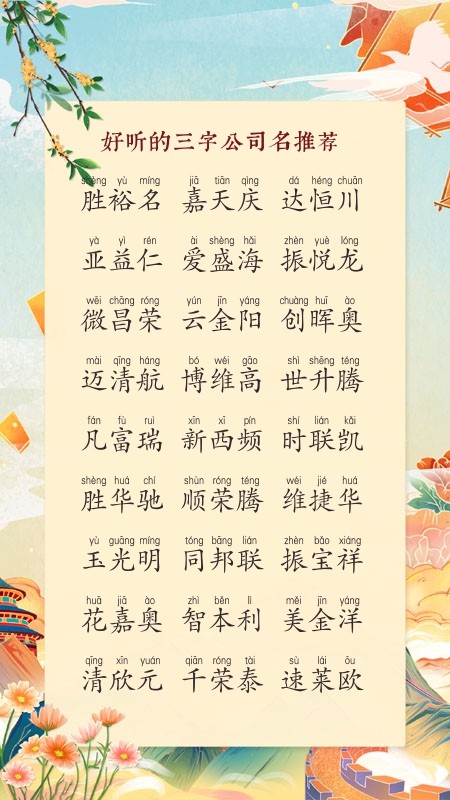 好听的三字公司名推荐
shèng yù míng jiā tiān qìng dá héng chuān
胜裕名 嘉天庆 达恒川
yà yì rén ài shèng hǎi zhèn yuè lóng
亚益仁 爱盛海 振悦龙
wēi chāng róng yún jīn yáng chuàng huī ào
微昌荣 云金阳 创晖奥
mài qīng háng bó wéi gāo shì shēng téng
迈清航 博维高 世升腾
fán fù ruì xīn xī pín shí lián kǎi
凡富瑞 新西频 时联凯
shèng huá chí shùn róng téng wéi jié huá
胜华驰 顺荣腾 维捷华
yù guāng míng tóng bāng lián zhèn bǎo xiáng
玉光明 同邦联 振宝祥
huā jiā ào zhì běn lì měi jīn yáng
花嘉奥 智本利 美金洋
qīng xīn yuán qiān róng tài sù lái ōu
清欣元 千荣泰 速莱欧